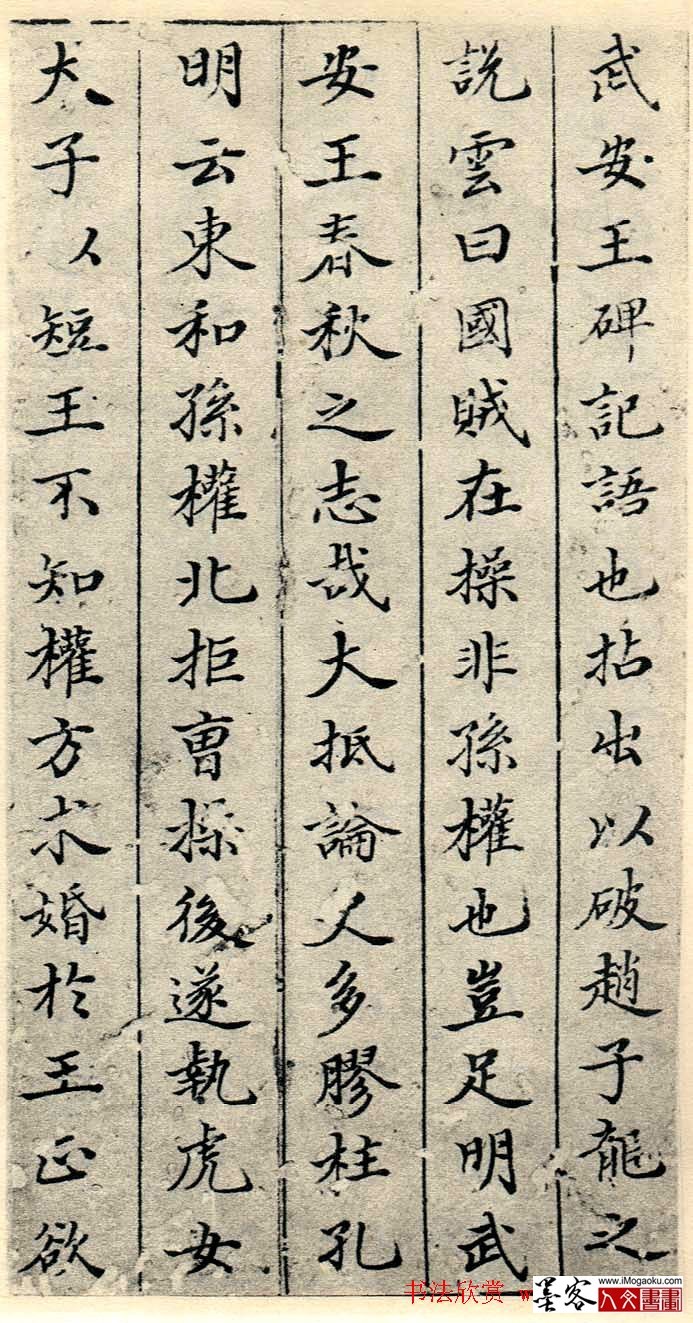 武安王碑記語也拈出以破趙子龍之
說雲曰國賊在操非孫權也豈足明武
安王春秋之志哉大抵論人多膠柱孔
明云東和孫權北拒曺操後遂執虎女
犬子以短王不知權方求婚於王正欲
书法欣赏 w
墨客
www.iMogaoku.com
人文書畫